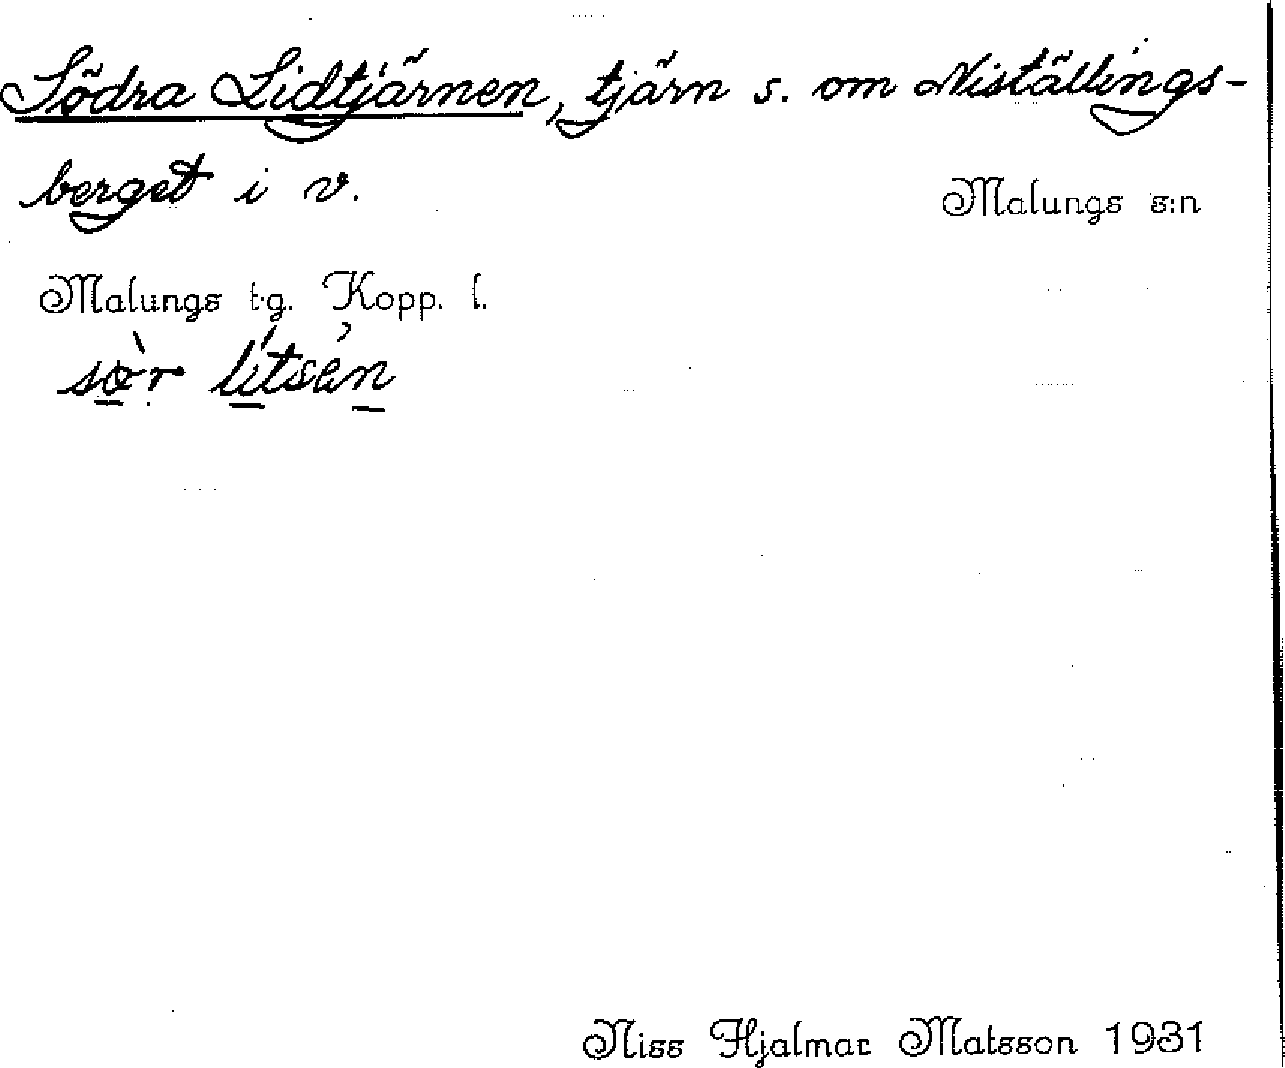 Södra Lidtjärnen, tjärn s. om Niställings-
berget i v.
Malungs s:n
Malungs t.g. Kopp. l.
sœ̀r lítsän
Niss Hjalmar Matsson 1931